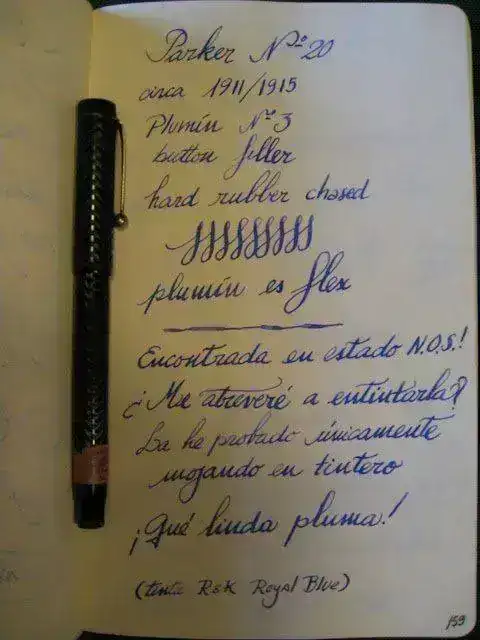 Parker Nº 20
circa 1911/1915
Plumín Nº 3
button filler
hard rubber chased
plumín es flex
Encontrada en estado N.O.S.!
¿Me atreveré a entintarla?
La he probado únicamente
mojando en tintero
¡Qué linda pluma!
(tinta R&K Royal Blue)
159